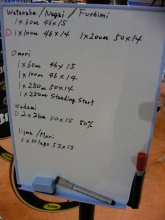 Watanabe / Nagai / Fushimi
1 x 60m 46x15
D 1 x 100m 46x14 1 x 200m 50x14
Omori
1 x 60m 46x15
1 x 100m 46x14
1 x 250m 50x14
1 x 250m Standing Start
Wadami
D 2 x 2km 50x15 80%
Iijima / Mori
1 x 10 laps 52x15